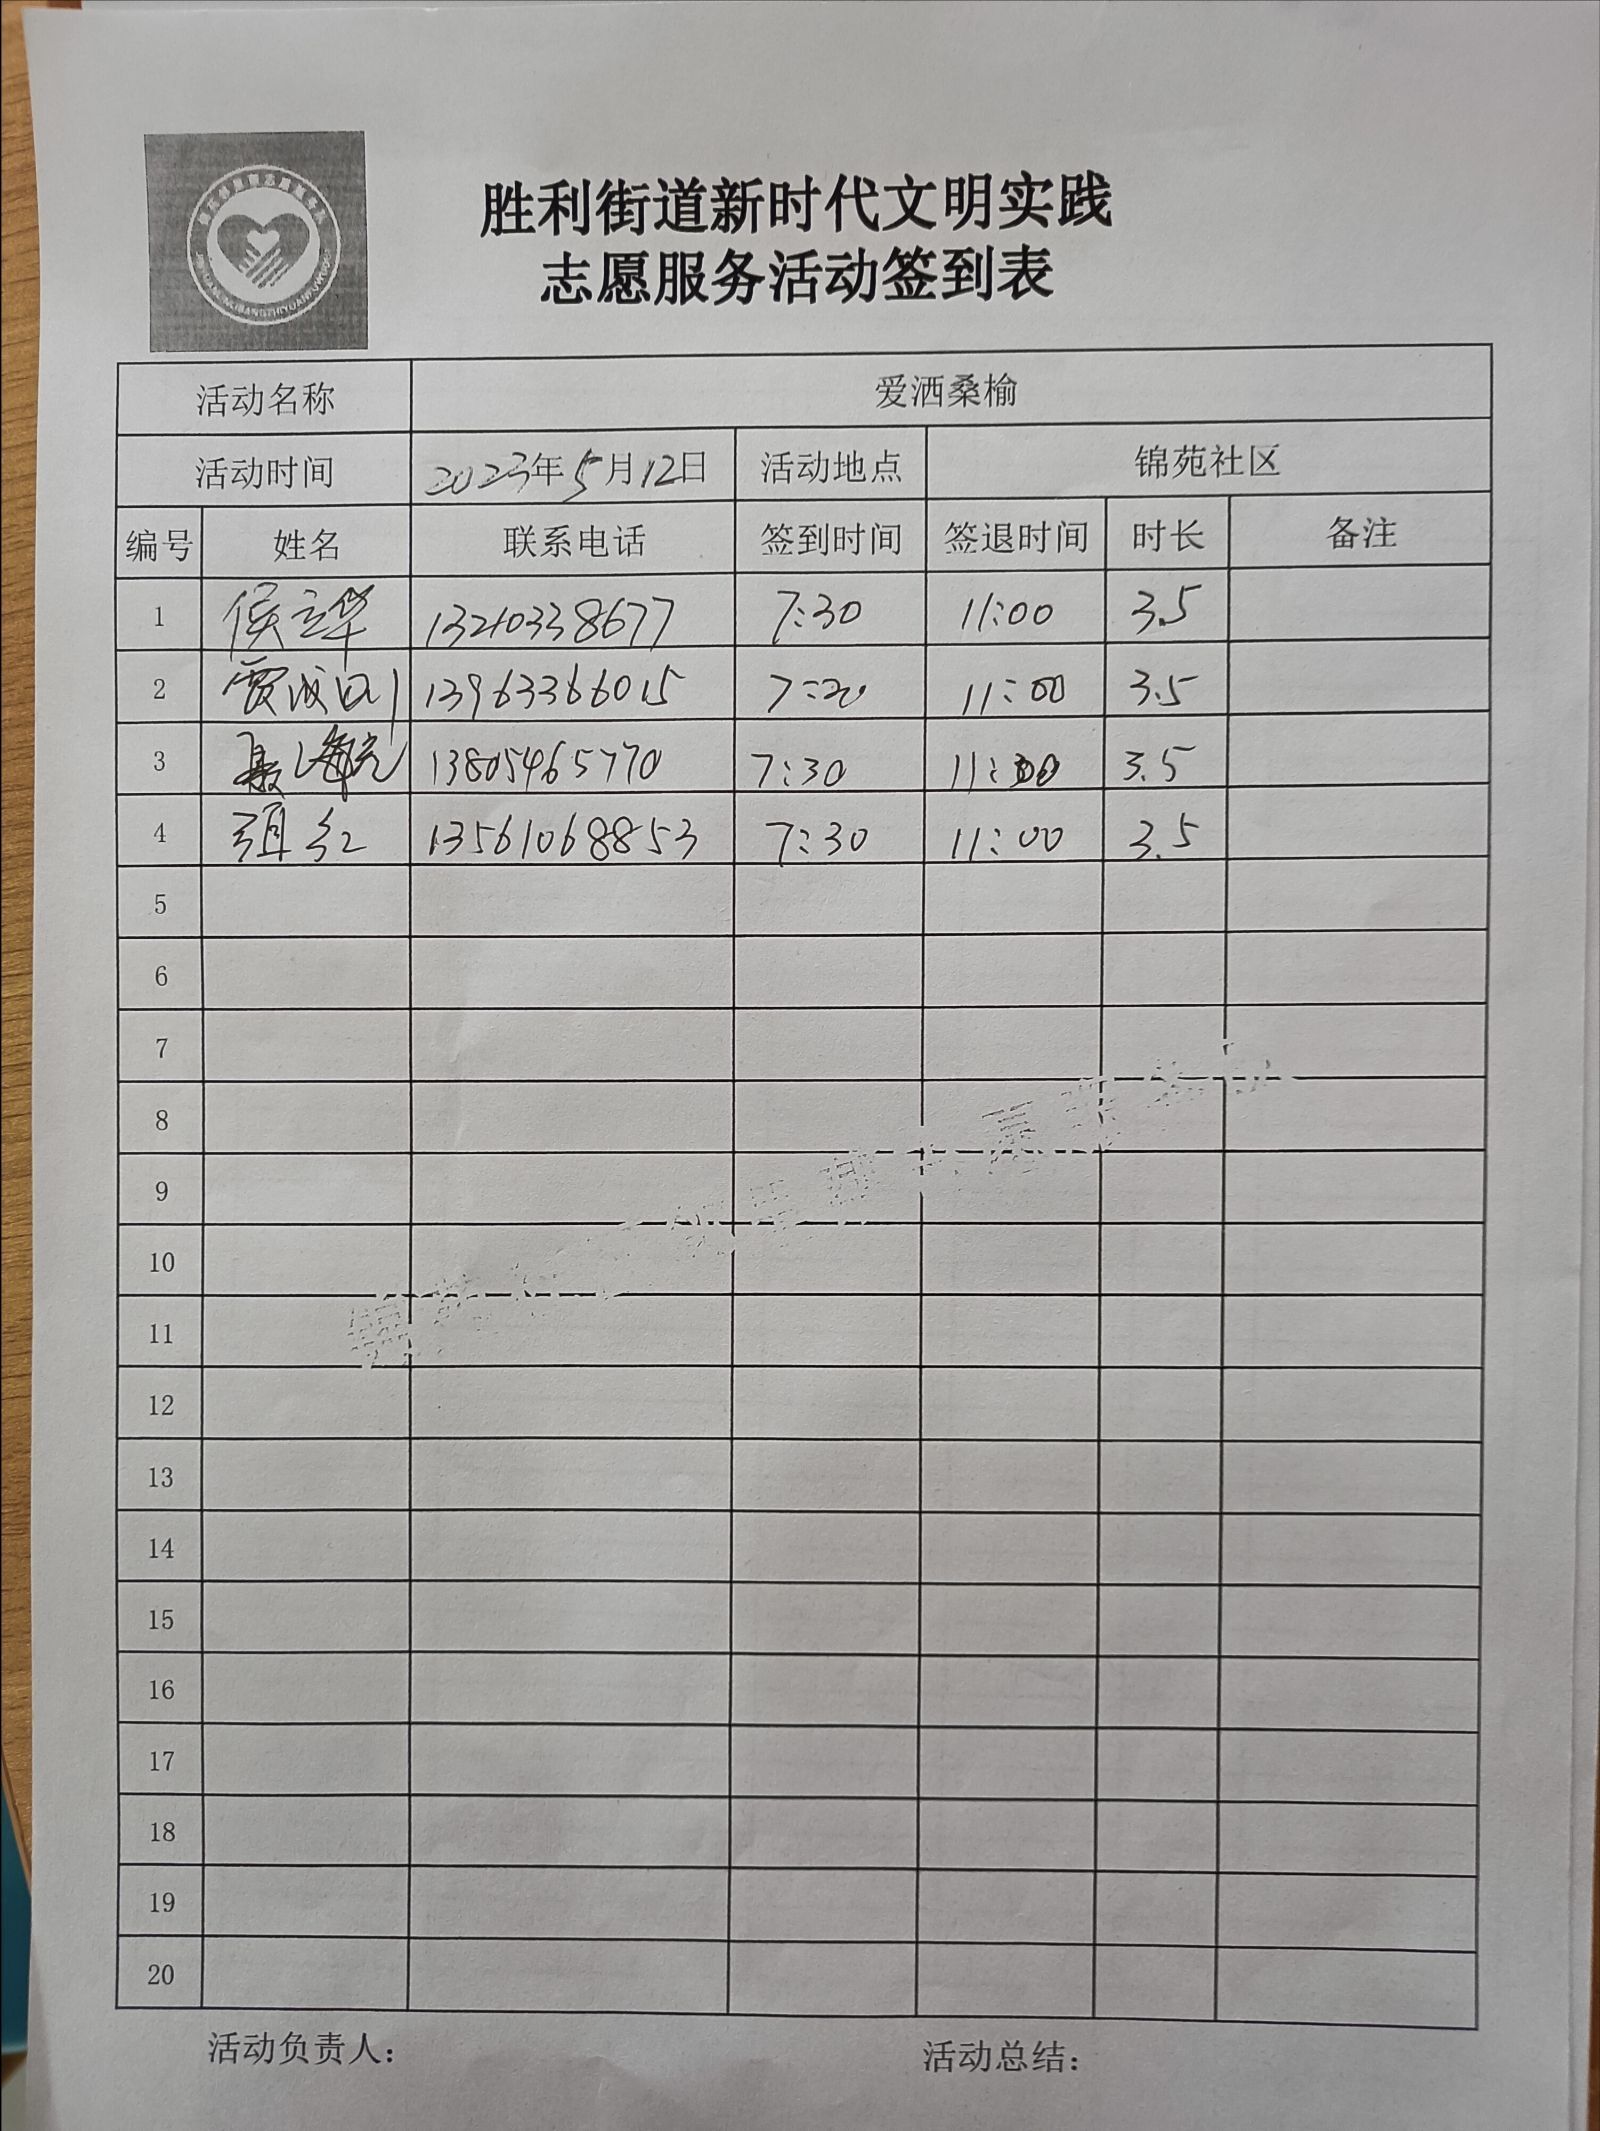 胜利街道新时代文明实践
志愿服务活动签到表
活动名称 爱洒桑榆
活动时间 2023年5月12日 活动地点 锦苑社区
编号 姓名 联系电话 签到时间 签退时间 时长 备注
1 侯立华 13210338677 7:30 11:00 3.5
2 贾成 13963366015 7:20 11:00 3.5
3 聂海 13805465770 7:30 11:00 3.5
4 红 13561068853 7:30 11:00 3.5
5
6
7
8
9
10
11
12
13
14
15
16
17
18
19
20
活动负责人: 活动总结: